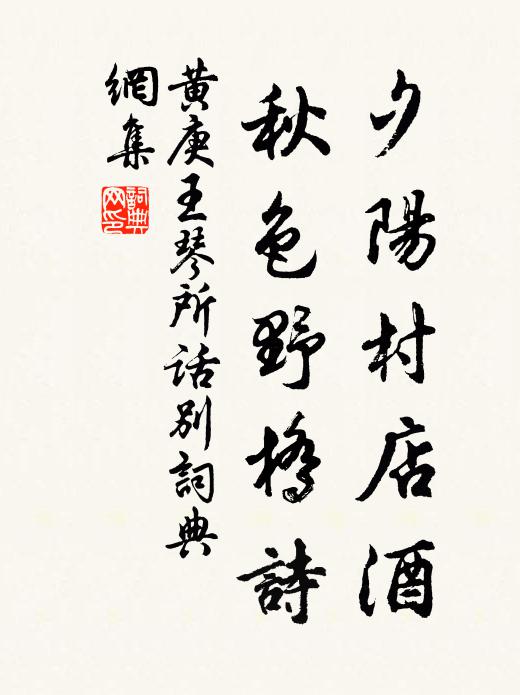 夕陽村店酒
秋色野橋詩
黃庚王琴所話別詞典
網集
詞典
网印